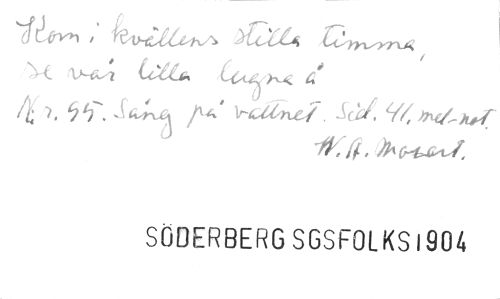 Kom i kvällens stilla timma,
se vår lilla lugna å
N:r. 95. Sång på vattnet. Sid. 41. mel-not.
W. A. Mozart.
SÖDERBERG SGSFOLKS 1904